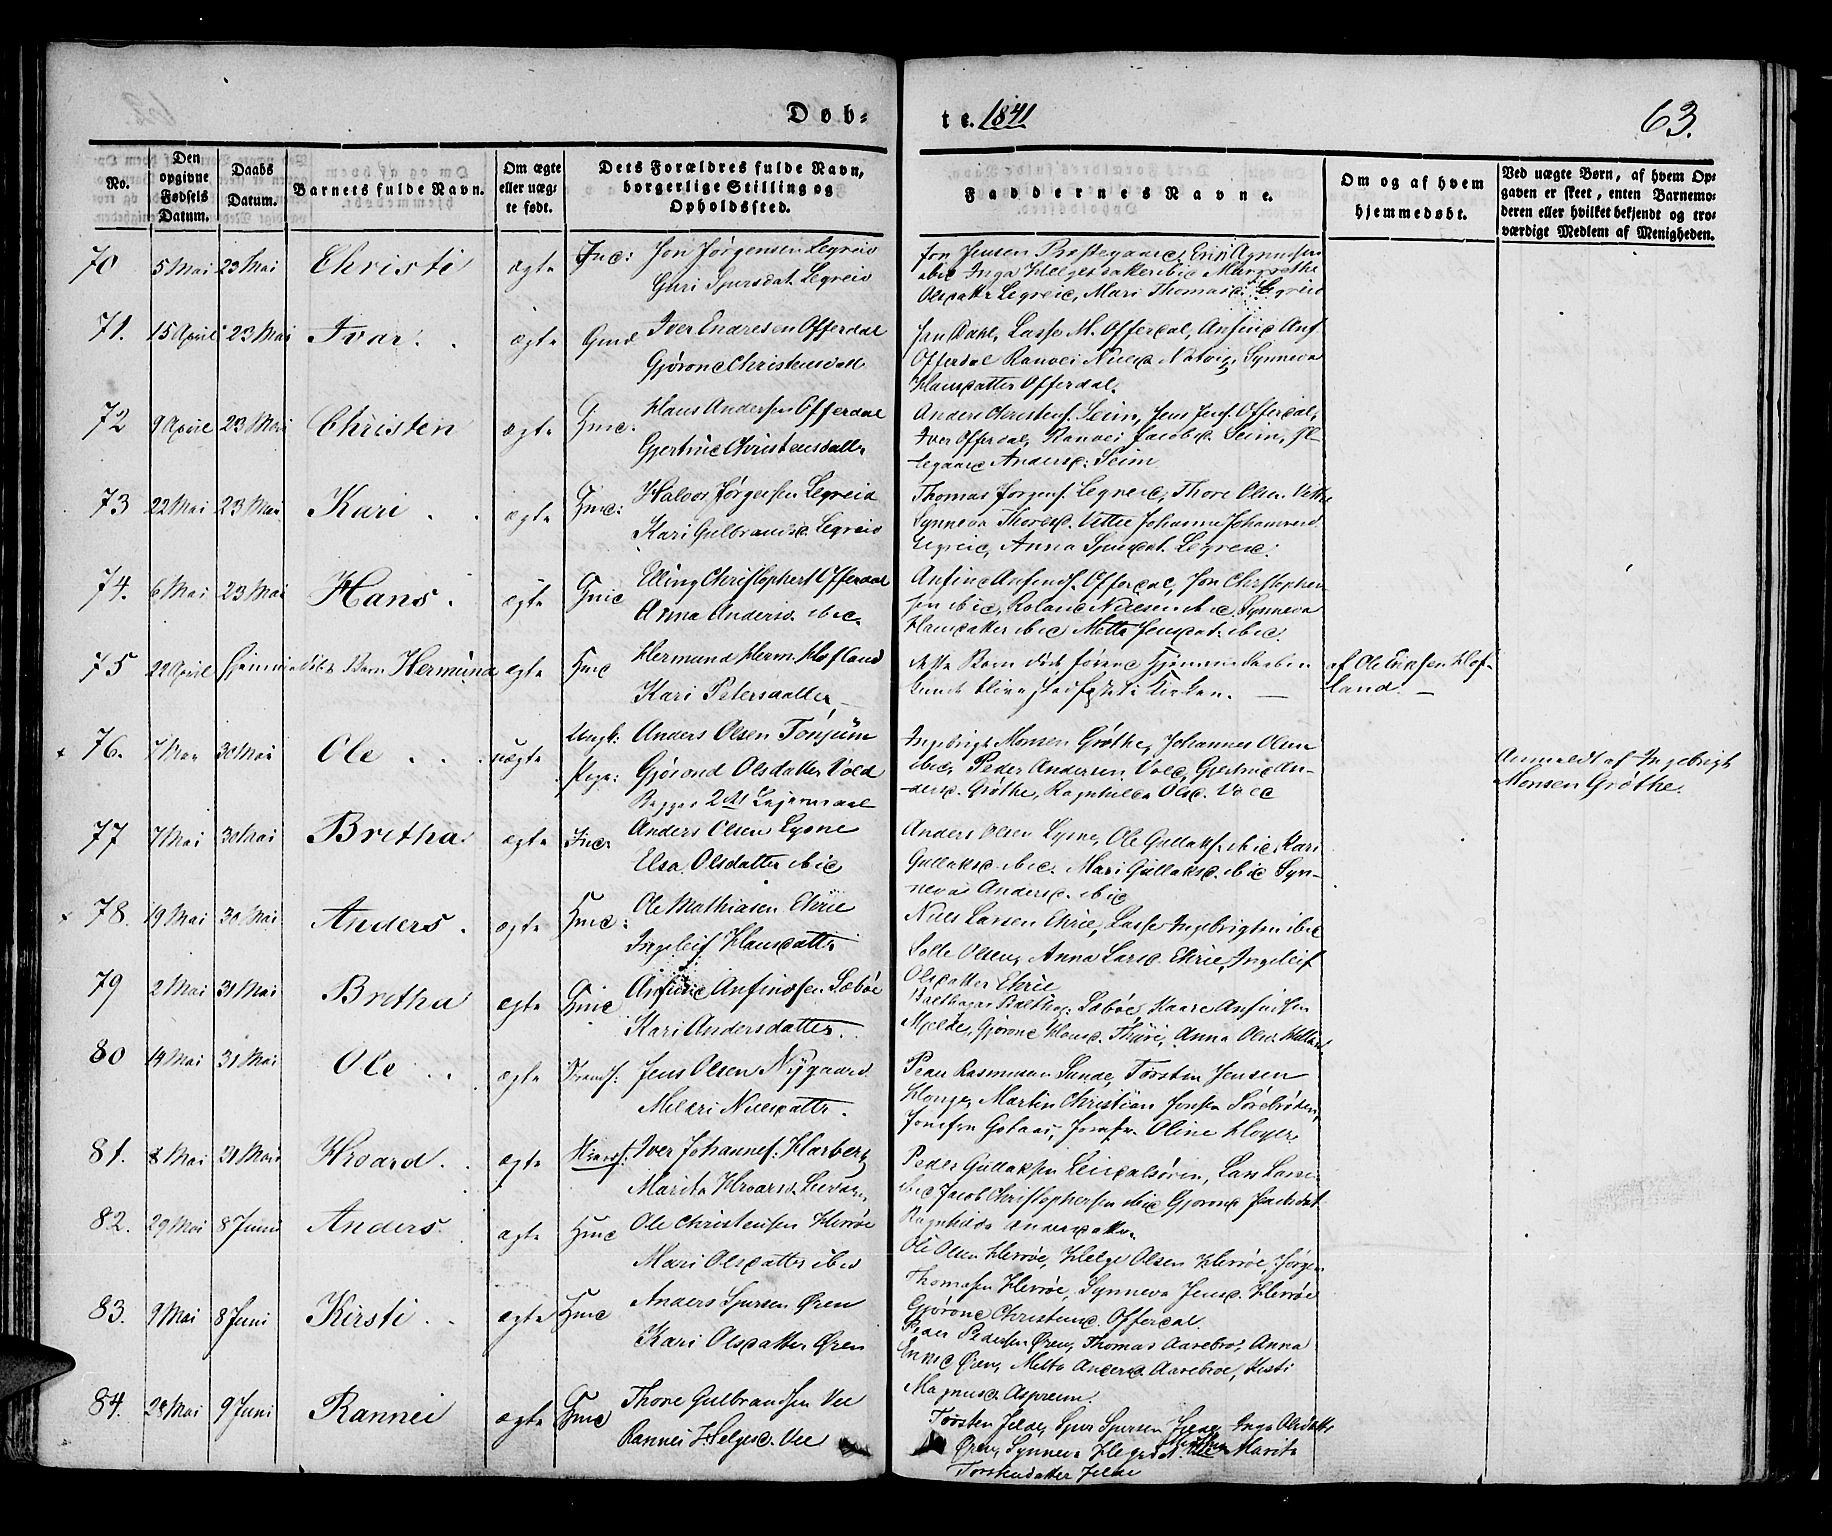 Døb-
te. 1841
63.
No.
Den opgivne Fødsels Datum.
Daabs Datum.
Barnets fulde Navn.
Om ægte eller uægte født.
Dets Forældres fulde Navn, borgerlige Stilling og Opholdssted.
Faddernes Navne.
Om og af hvem hjemmedøbt.
Ved uægte Børn, af hvem Opgaven er skeet, enten Barnemoderen eller hvilket bekjendt og troværdige Medlem af Menigheden.
70 5 Mai 23 Mai Christi ægte Jon Jørgensen Legreid
Guri Sjursdat. Legreid
71. 15 April 23 Mai Ivar ægte Gmd Iver Endresen Offerdal
Gjørond Christensdatt
Jan Dahl, Lasse M. Offerdal, Anfind Anf.
Offerdal Ranvei Nielsd Natvig, Synneva
Hansdatter Offerdal.
72 9 April 23 Mai Christen ægte Hmd: Hans Andersen Offerdal
Gjertrud Christensdattr
Anders Christens. Seim, Jens Jens. Offerdal,
Iver Offerdal, Ranvei Jacobsd. Seim,
Andersd: Seim
73 22 Mai 23 Mai Kari ægte Hmd: Halvor Jørgensen Legreid
Kari Gulbrandsd. Legreid
Thomas Jørgens. Legreid, Thore Olsen Vettie
Synneva Thoresd. Vettie Johanna Johannesd.
Legreid, Anna Sjursdat. Legreid:
74. 6 Mai 23 Mai Hans ægte Gmd Elling Christophers Offerdal
Anna Andersd. ibid.
Anfind Anfinds. Offerdal, Jon Christophersen
ibid, Roland Nielsen ibid, Synneva
Hansdatter ibid Metta Jensdat. ibid.
75 22 April Hjemmedøbt Barn Hermund ægte Hmd Hermund Herm. Hofland
Kari Petersdatter
dette Barn døde førend Hjemmedaaben
kunde blive stadfæstet i Kirken.
af Ole Eriksen Hofland.
76. 7 Mai 30 Mai Ole uægte Ungk: Anders Olsen Tønjum
Pige: Gjørond Olsdatter Vold
Begges 2det Lejermaal
Ingebrigt Monsen Grøthe, Johannes Olsen
ibid, Peder Andersen Vold, Gjertrud An-
dersd. Grøthe, Ragnhilda Olsd. Vold
Anmeldt af Ingebrigt
Monsen Grøthe.
77 7 Mai 30 Mai Bretha ægte Anders Olsen Lysne
Elsa Olsdatter ibid
Anders Olsen Lysne, Ole Gullaks. ibid, Kari
Gullaksd. ibid. Mari Gullaksd. ibid Syn-
neva Andersd. ibid
78. 19 Mai 30 Mai Anders ægte Hmd: Ole Mathiasen Ehrie
Ingeleif Hansdattr
Niels Larsen Ehrie, Lasse Ingebrigtsen ibid
Olsen, Anna Larsd. Ehrie, Ingeleif
Olsdatter Ehrie
79 2 Mai 31 Mai Bretha ægte Hmd Anfind Anfindsen Sæbøe
Kari Andersdatter
Balthazar Balthaz: Sæbøe, Kaare Anfindsen
Mjelde, Gjørond Hansd. Anna Olsd.
80 14 Mai 31 Mai Ole ægte Strands: Jens Olsen Nygaard
Nielsdattr.
Peder Rasmussen Sunde, Torsten Jensen
Hauge, Martin Christian Jensen
Oline
81. 8 Mai 31 Mai Hroard ægte Iver Johannes:
Marita Hroarsd.
Peder Gullaksen Leirdalsøren, Lars Larsen
ibid Jacob Christophersen ibid Gjørond
Ragnhilda Andersdatter
82. 29 Mai 8 Juni Anders ægte Hmd Ole Christensen Herrøe
Mari Olsdatter ibid
Ole Olsen Herrøe, Helge Olsen Herrøe, Jørgen
Thomasen Herrøe, Synneva Jensd. Herrøe
Gjørond Christensd. Offerdal
83. 9 Mai 8 Juni Kirsti ægte Hmd Anders Sjursen Øren
Kari Olsdatter Øren
Peder Pedersen Øren, Thomas Aarebroe, Anna
Øren, Metta Andersd. Aarebroe, Kisti
Magnusd. Asperem.
84. 28 Mai 9 Juni Rannei ægte Hmd Thore Gulbrandsen Vee
Rannei Helgesd. Vee
Torsten Jelde, Sjur Sjursen Inga Olsdatter
Øren, Synneva Marita
Torstensdatter Jelde